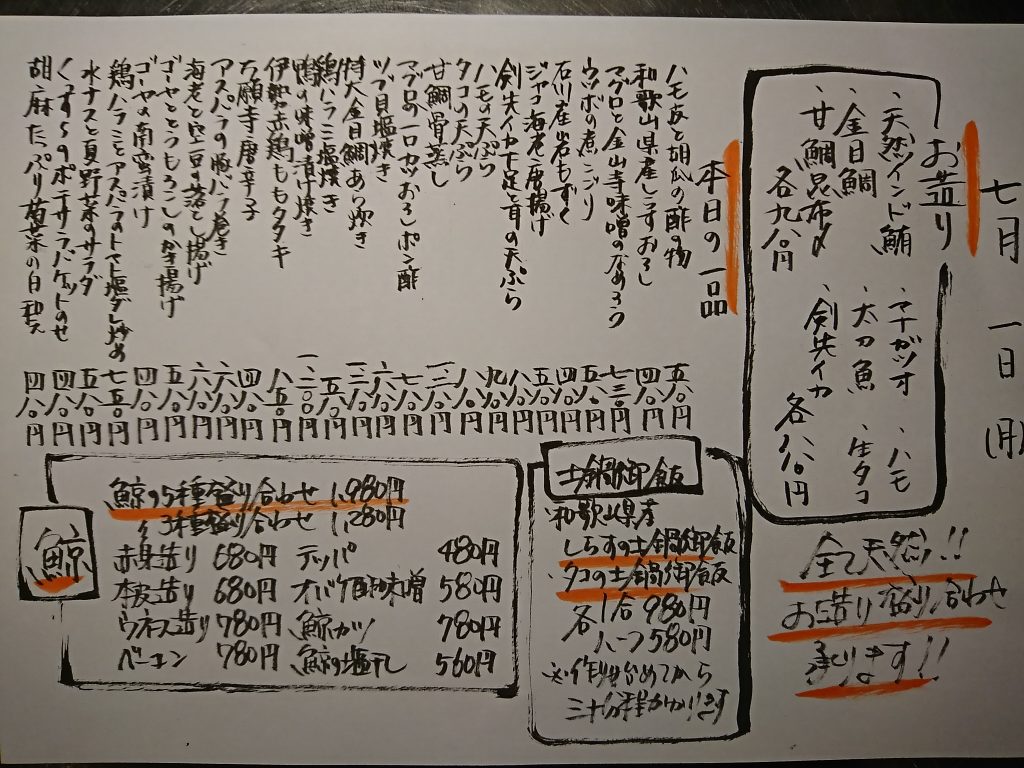 七月 一日 (月)
お造り
・天然ツインド鮪 ・マナガツオ ・ハモ
・金目鯛 ・太刀魚 ・生タコ
・甘鯛昆布〆 ・剣先イカ
各九八〇円 各八八〇円
全て天然!!
お造り盛り合わせ
承ります!!
本日の一品
ハモ皮と胡瓜の酢の物 五八〇円
和歌山県産しらすおろし 四八〇円
マグロと金山寺味噌のなめろう 七三〇円
ウツボの煮こごり 五八〇円
石川産岩もずく 四八〇円
ジャコ海老唐揚げ 五八〇円
剣先イカ下足と耳の天ぷら 八八〇円
ハモの天ぷら 九八〇円
タコの天ぷら 八八〇円
甘鯛骨蒸し
マグロの一口カツおろしポン酢 七八〇円
ツブ貝塩焼き 六八〇円
特大金目鯛あら炊き
鶏ハラミ塩焼き 五八〇円
鴨の味噌漬け焼き 一、二〇〇円
伊勢赤鶏ももタタキ 八五〇円
万願寺唐辛子 四八〇円
アスパラの豚バラ巻き 六八〇円
海老と空豆の落とし揚げ 六八〇円
ゴーヤととうもろこしのかき揚げ 五八〇円
ゴーヤの南蛮漬け 四八〇円
鶏ハラミとアスパラのトマト塩ダレ炒め 七五〇円
水ナスと夏野菜のサラダ 五八〇円
くずし豆のポテサラバケットのせ 四八〇円
胡麻たっぷり菊菜の白和え 四八〇円
土鍋御飯
・和歌山県産
しらすの土鍋御飯
・タコの土鍋御飯
各1合 980円
ハーフ 580円
※作り始めてから
三十分程かかります
鯨
鯨の5種盛り合わせ 1,980円
〃 3種盛り合わせ 1,280円
赤身造り 680円 テッパ 480円
本皮造り 680円 オバケ酢味噌 580円
ウネス造り 780円 鯨カツ 780円
ベーコン 780円 鯨の塩干し 560円